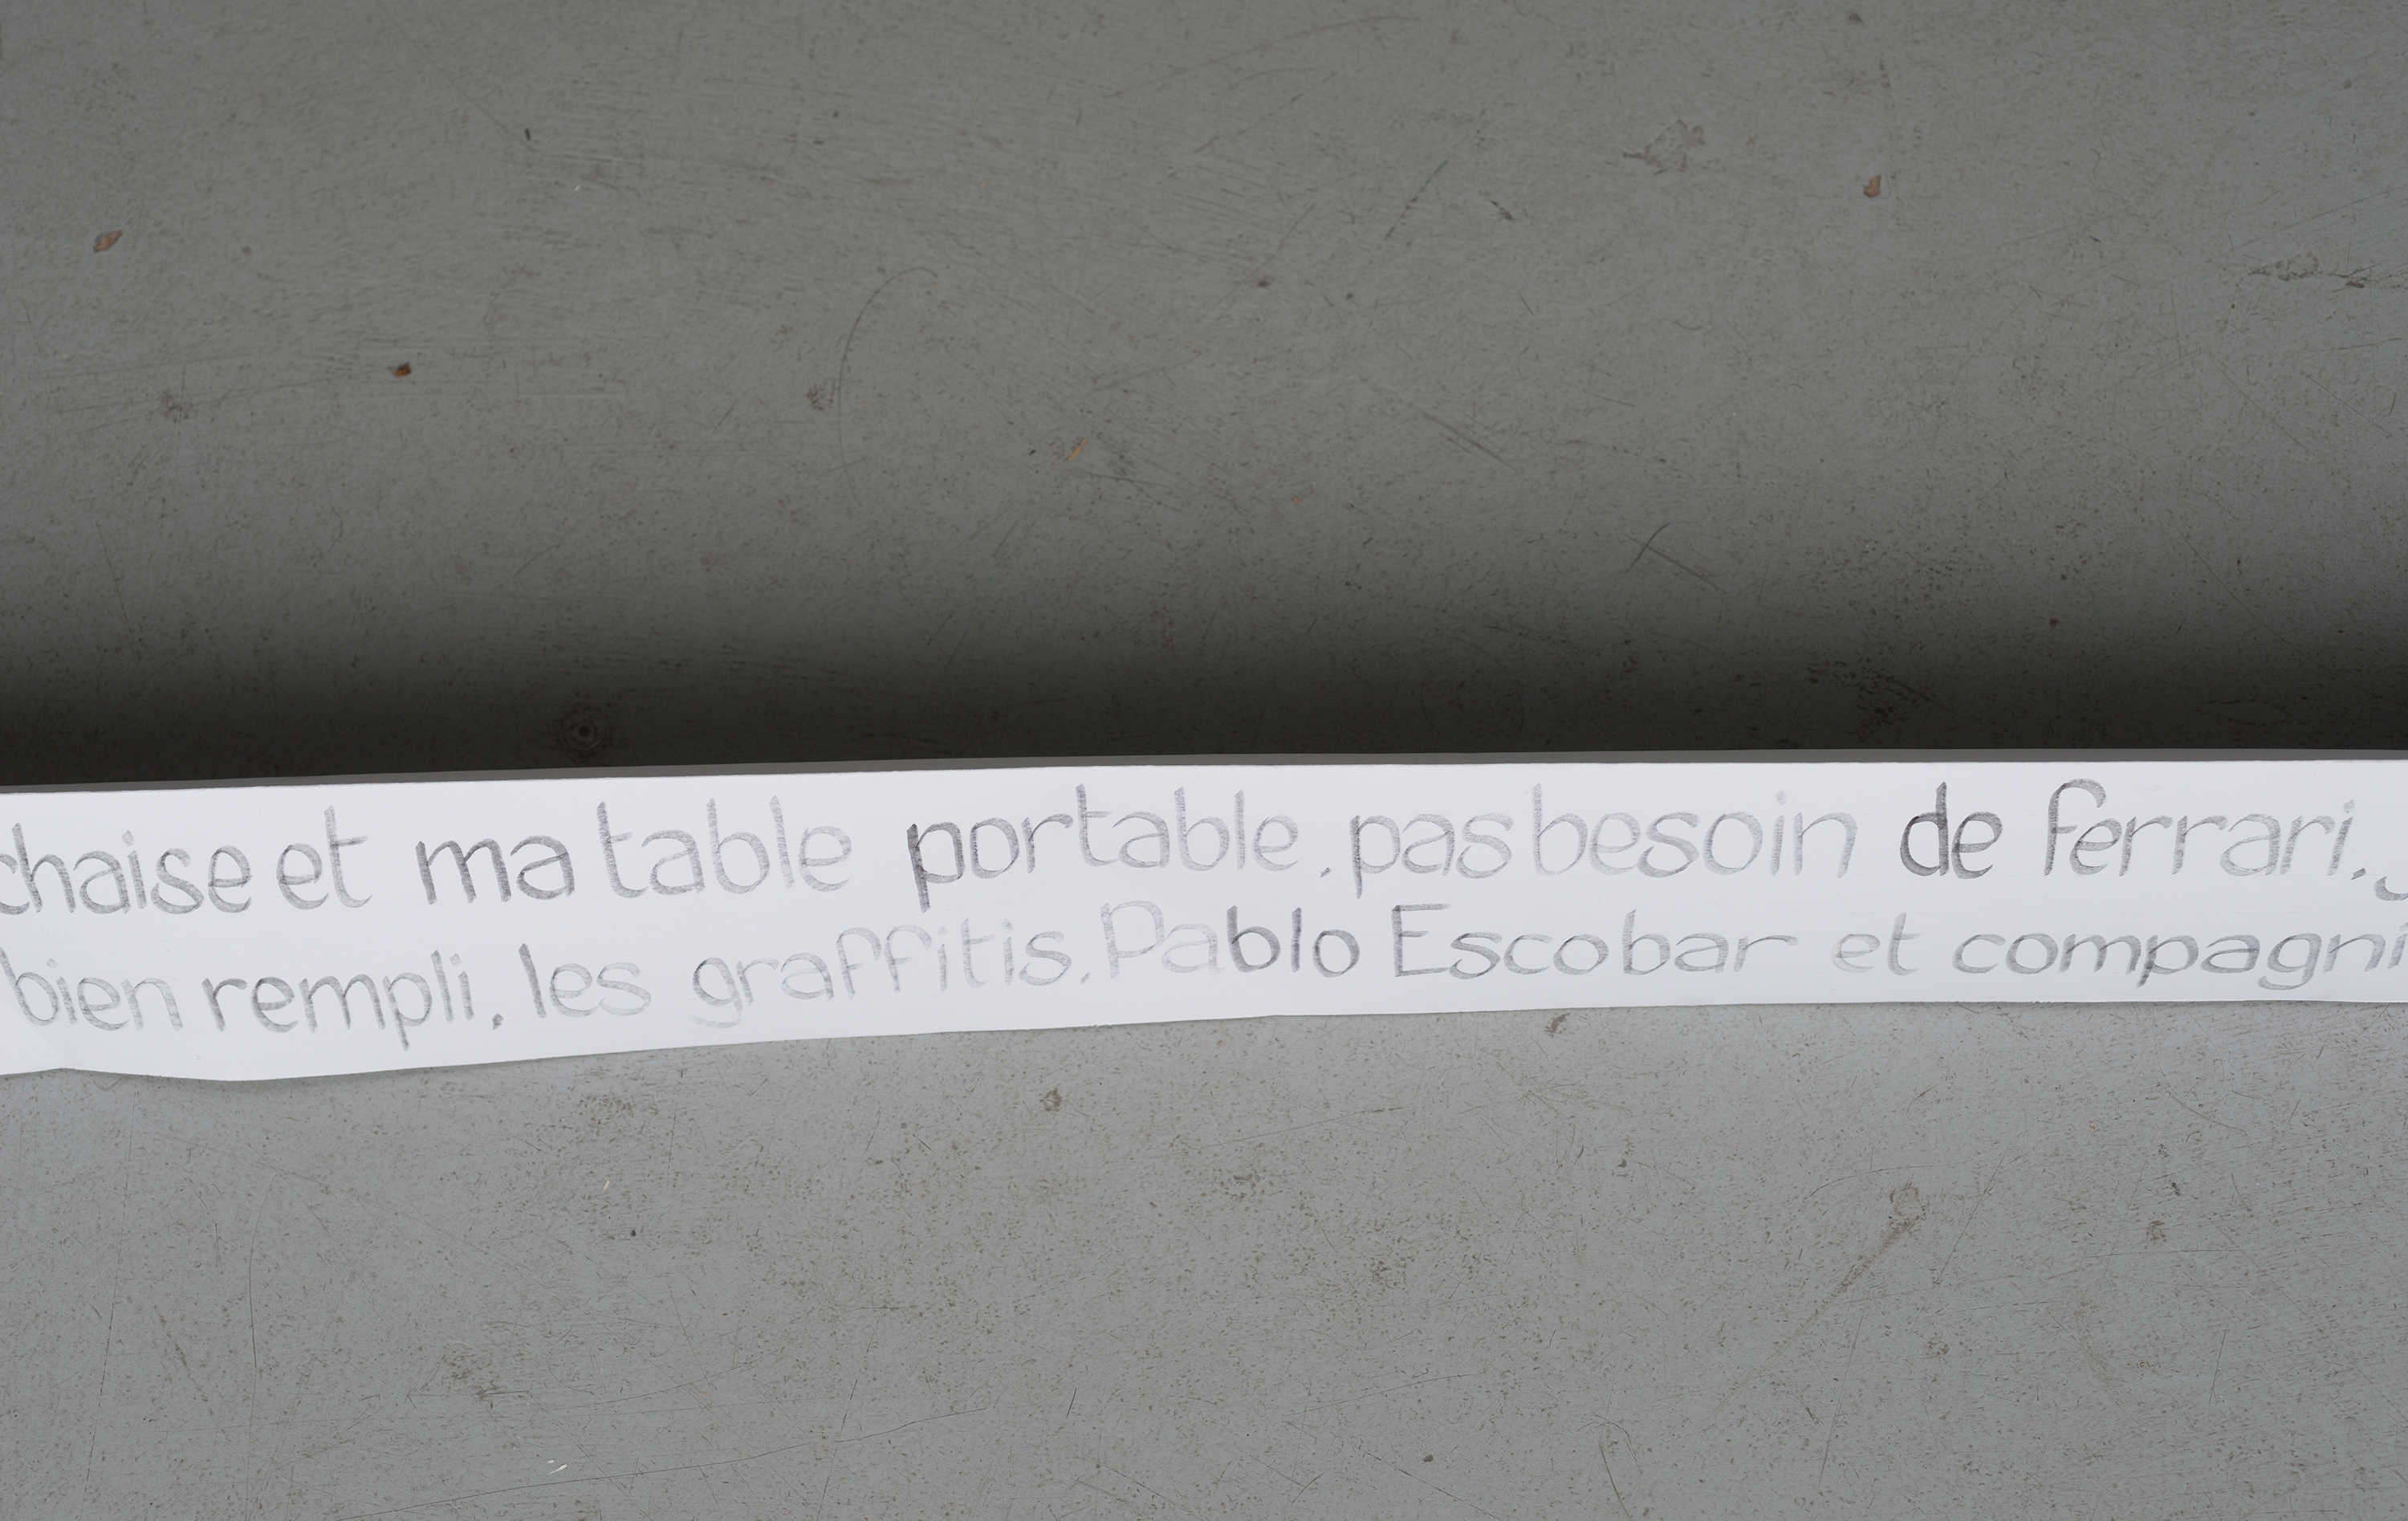 chaise et ma table portable, pas besoin de ferrari.
bien rempli, les graffitis, Pablo Escobar et compagni